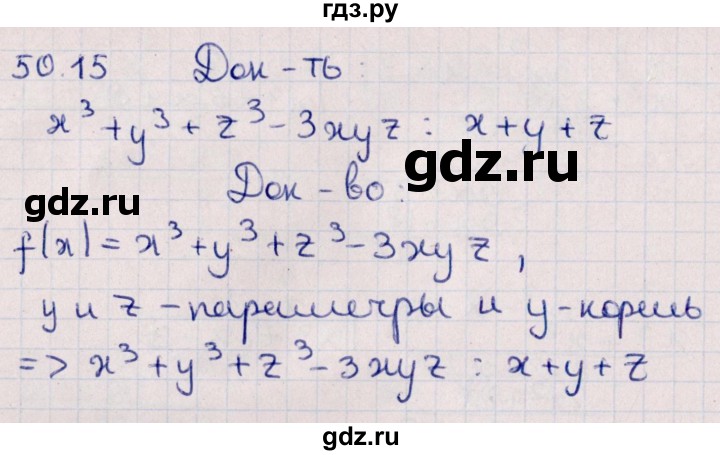 гдз.ру
50.15 Док-ть:
x³+y³+z³-3xyz ⋮ x+y+z
gdz.ru
gdz.ru
Док-во:
f(x)=x³+y³+z³-3xyz,
y и z -параметры и y-корень
=> x³+y³+z³-3xyz ⋮ x+y+z
gdz.ru